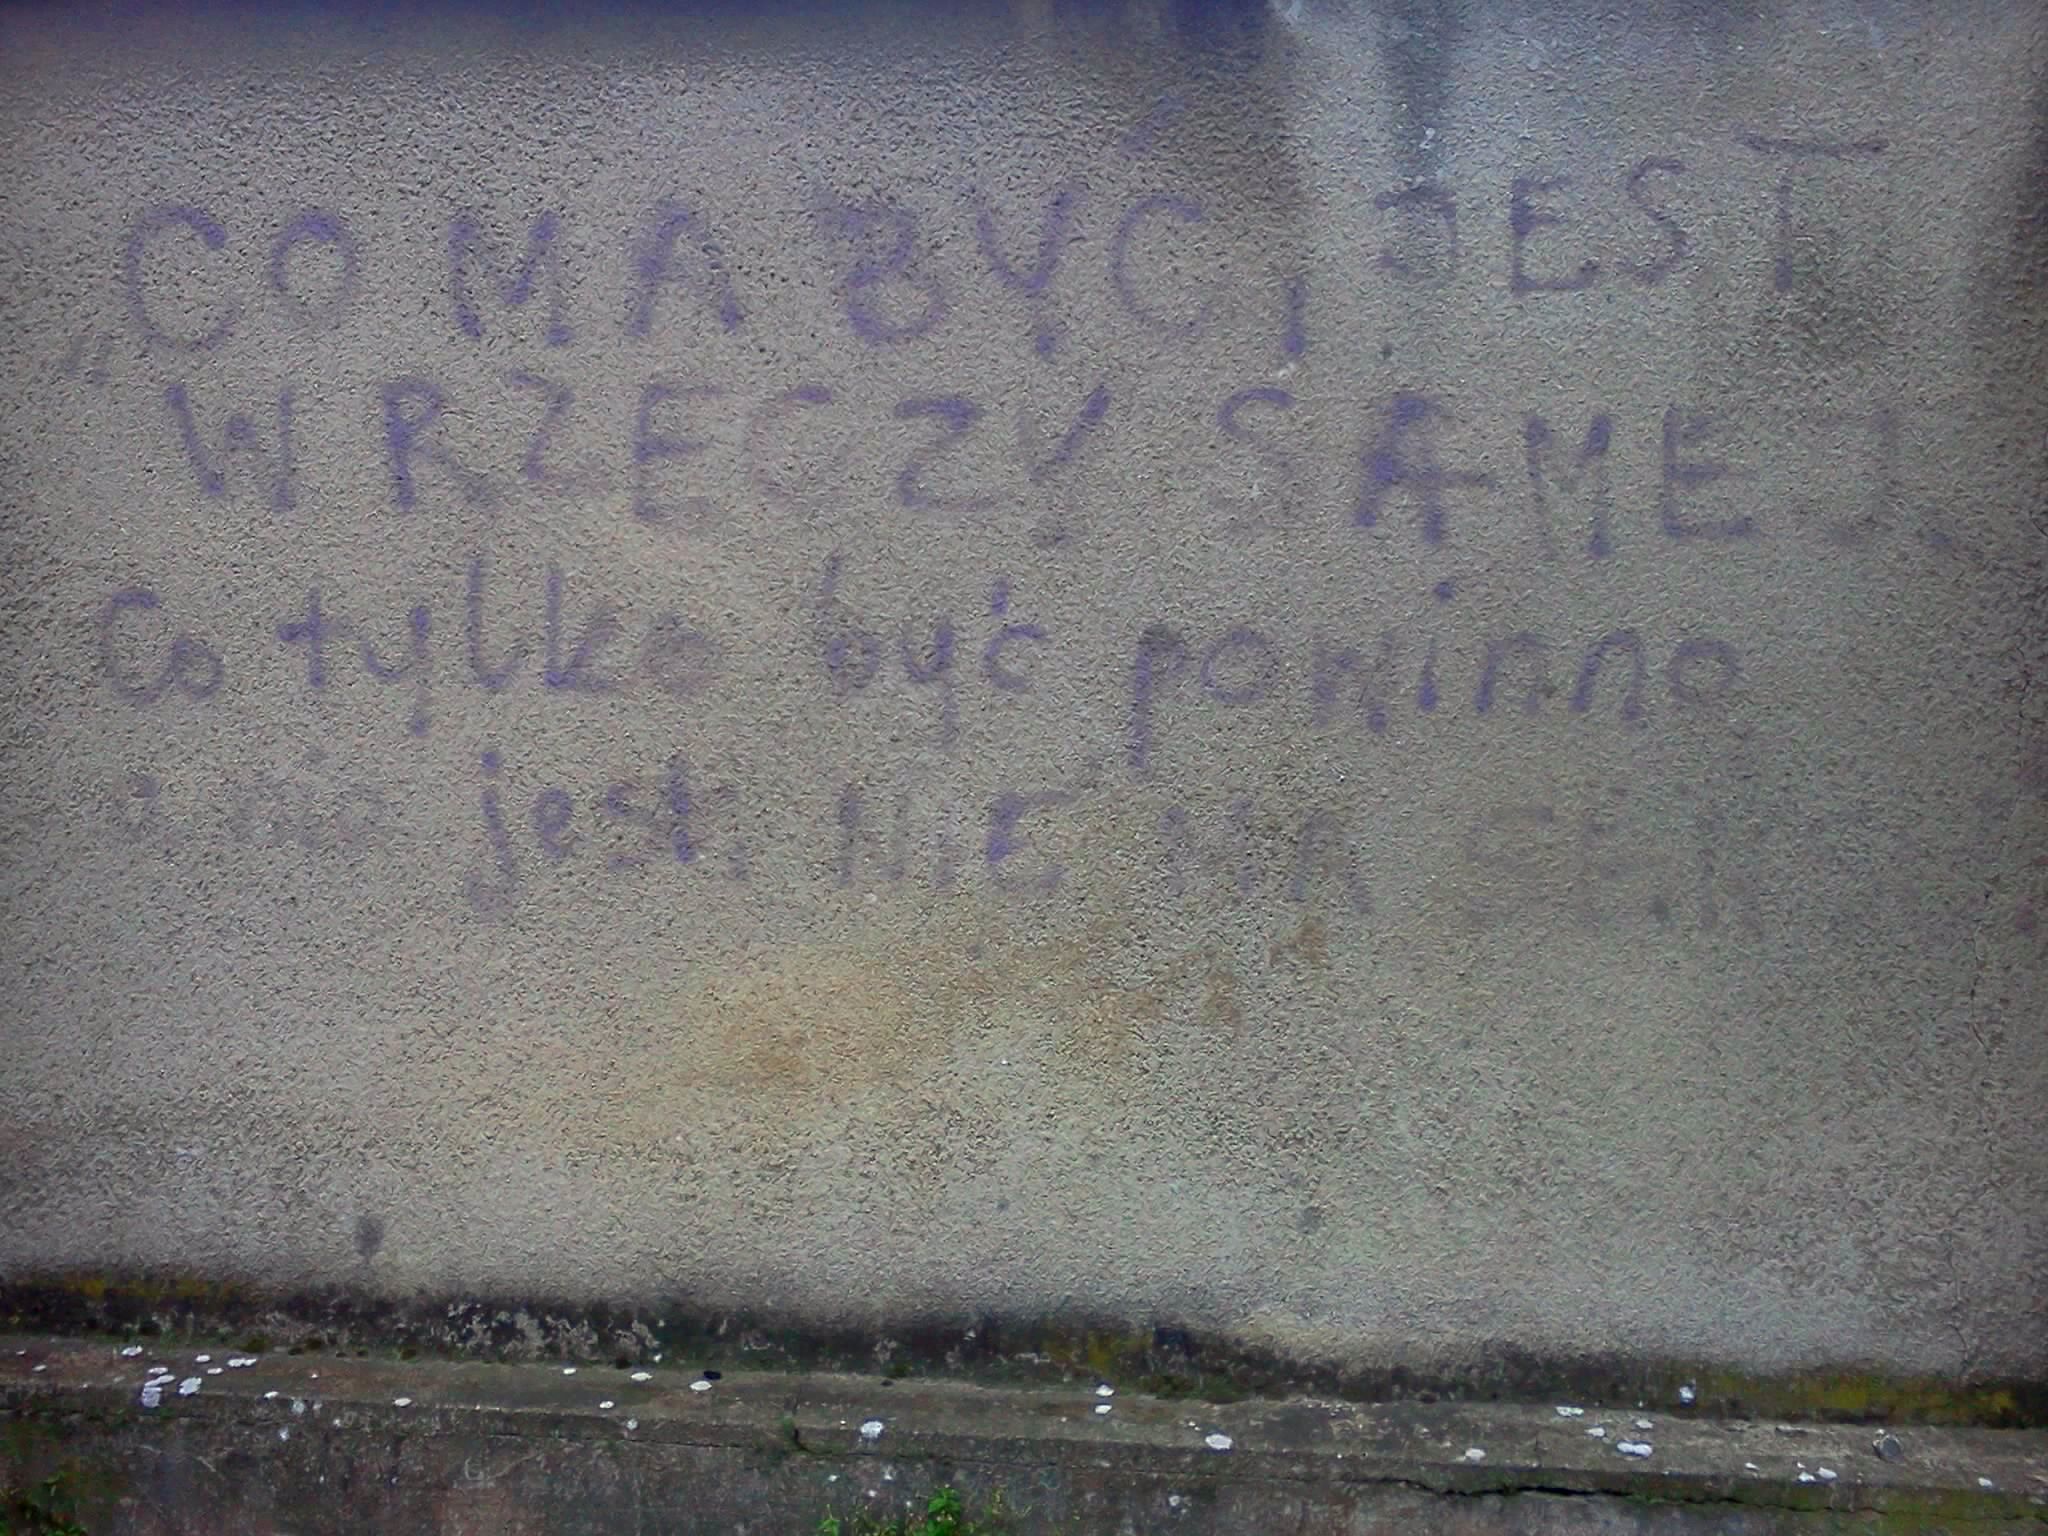 „CO MA BYĆ, JEST
W RZECZY SAMEJ
Co tylko być powinno
jest. NIE MA